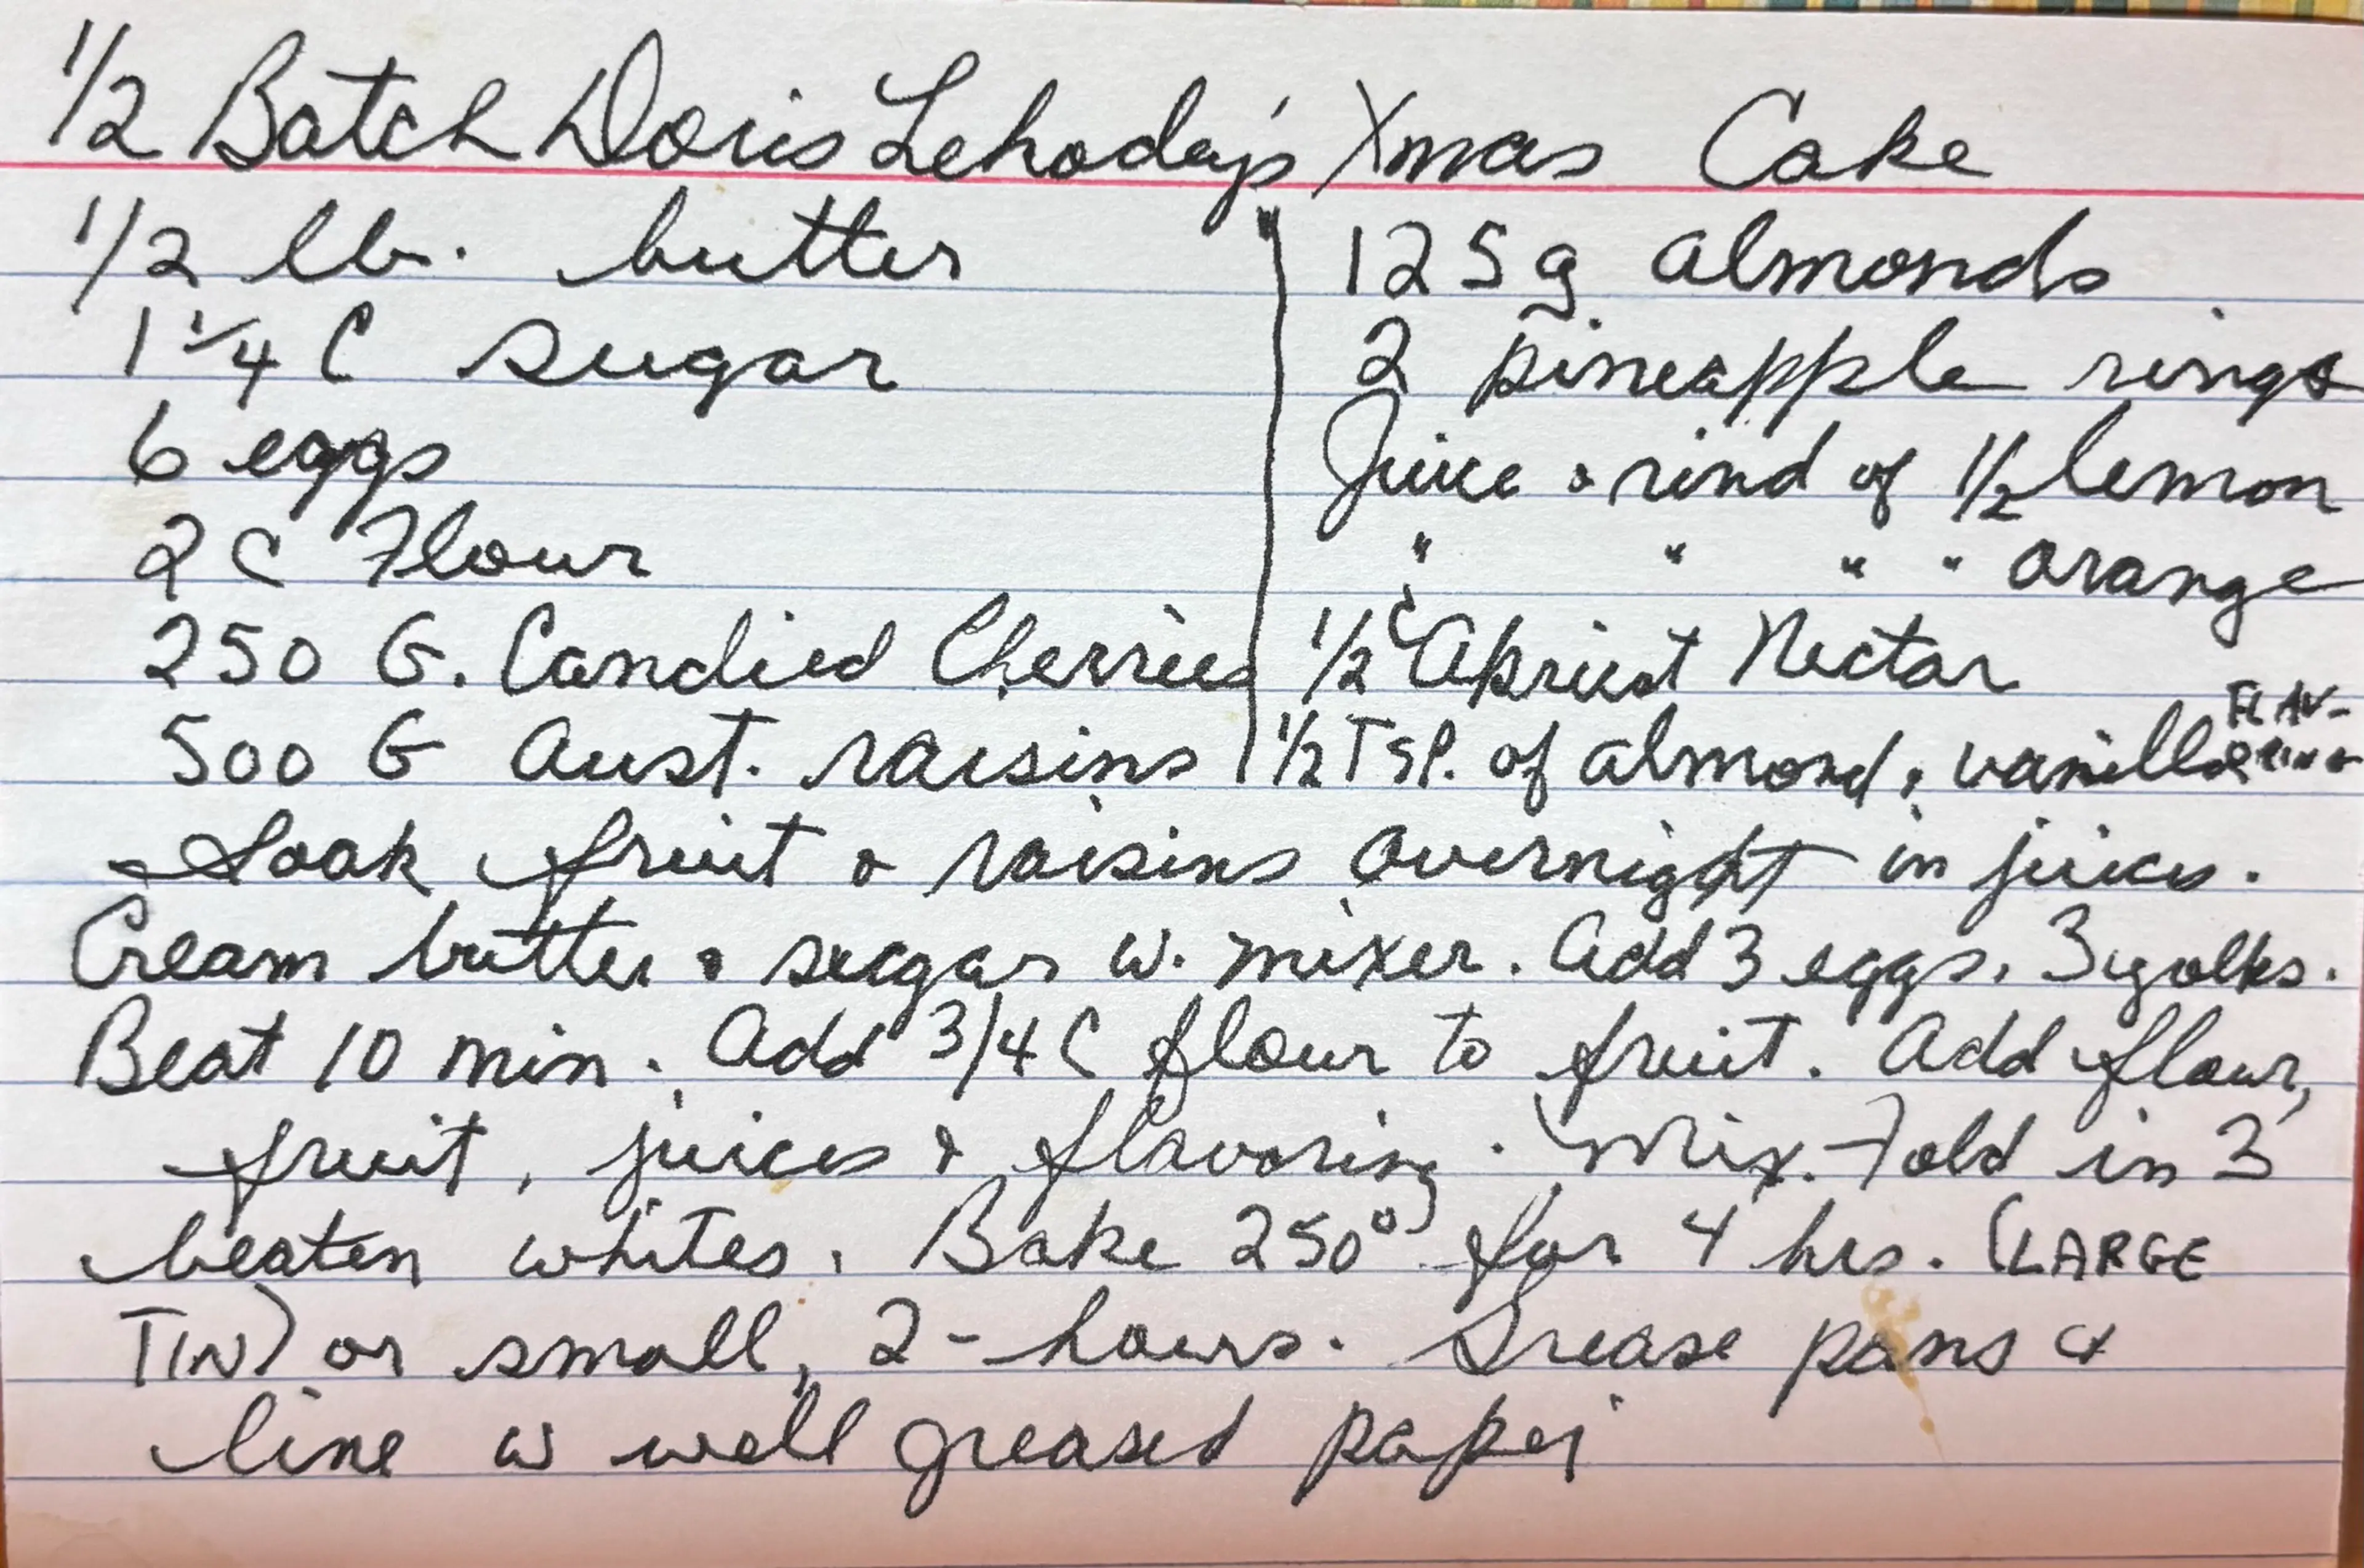 1/2 Batch Doris Lehoday's Xmas Cake
1/2 lb. butter
1 1/4 C sugar
6 eggs
2 C Flour
250 G. Candied Cherries
500 G Aust. raisins
125 g almonds
2 pineapple rings
Juice & rind of 1/2 lemon
" " " " orange
1/2 C Apricot Nectar
1/2 TSP. of almond & vanilla FLAVORING
Soak fruit & raisins overnight in juices.
Cream butter & sugar w. mixer. Add 3 eggs, 3 yolks.
Beat 10 min. Add 3/4 C flour to fruit. Add flour,
fruit, juices & flavoring. Mix. Fold in 3
beaten whites. Bake 250° for 4 hrs. (LARGE
TIN) or small, 2-hours. Grease pans &
line w well greased paper